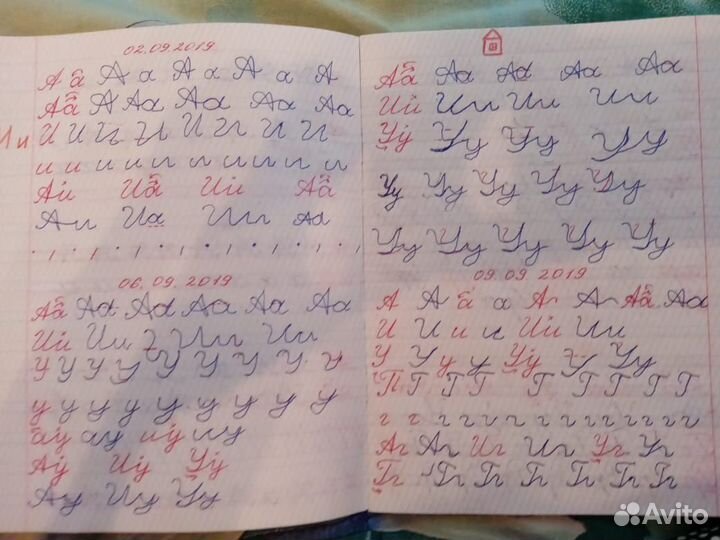 02.09.2019
А а А а А а А а А
Аа А Аа Аа Аа Аа
И И И И И И И И
И и
и и и и и и и и и и
Аи Иа Ии Аа
Аи Иа Ии Аа
. , . , . , . , . , . , . ,
06.09.2019
Аа Аа Аа Аа Аа Аа
Ии Ии Ии Ии
У У У У У У У У У
у у у у у у у у у
ау ау иу иу
Ау Иу Уу
Ау Иу Уу
Аа Аа Аа Аа Аа
Ии Ии Ии Ии
Уу Уу Уу Уу
Уу Уу Уу Уу Уу
Уу Уу Уу Уу Уу
09.09 2019
А А а а А А Аа Аа
И И и и Ии Ии
У У у у Уу У Уу
Г Г Г Г Г Г Г Г Г
г г г г г г г г г г г г
Аг Аг Иг Иг Уг Уг
Гг Гг Гг Гг Гг Гг Гг
Avito